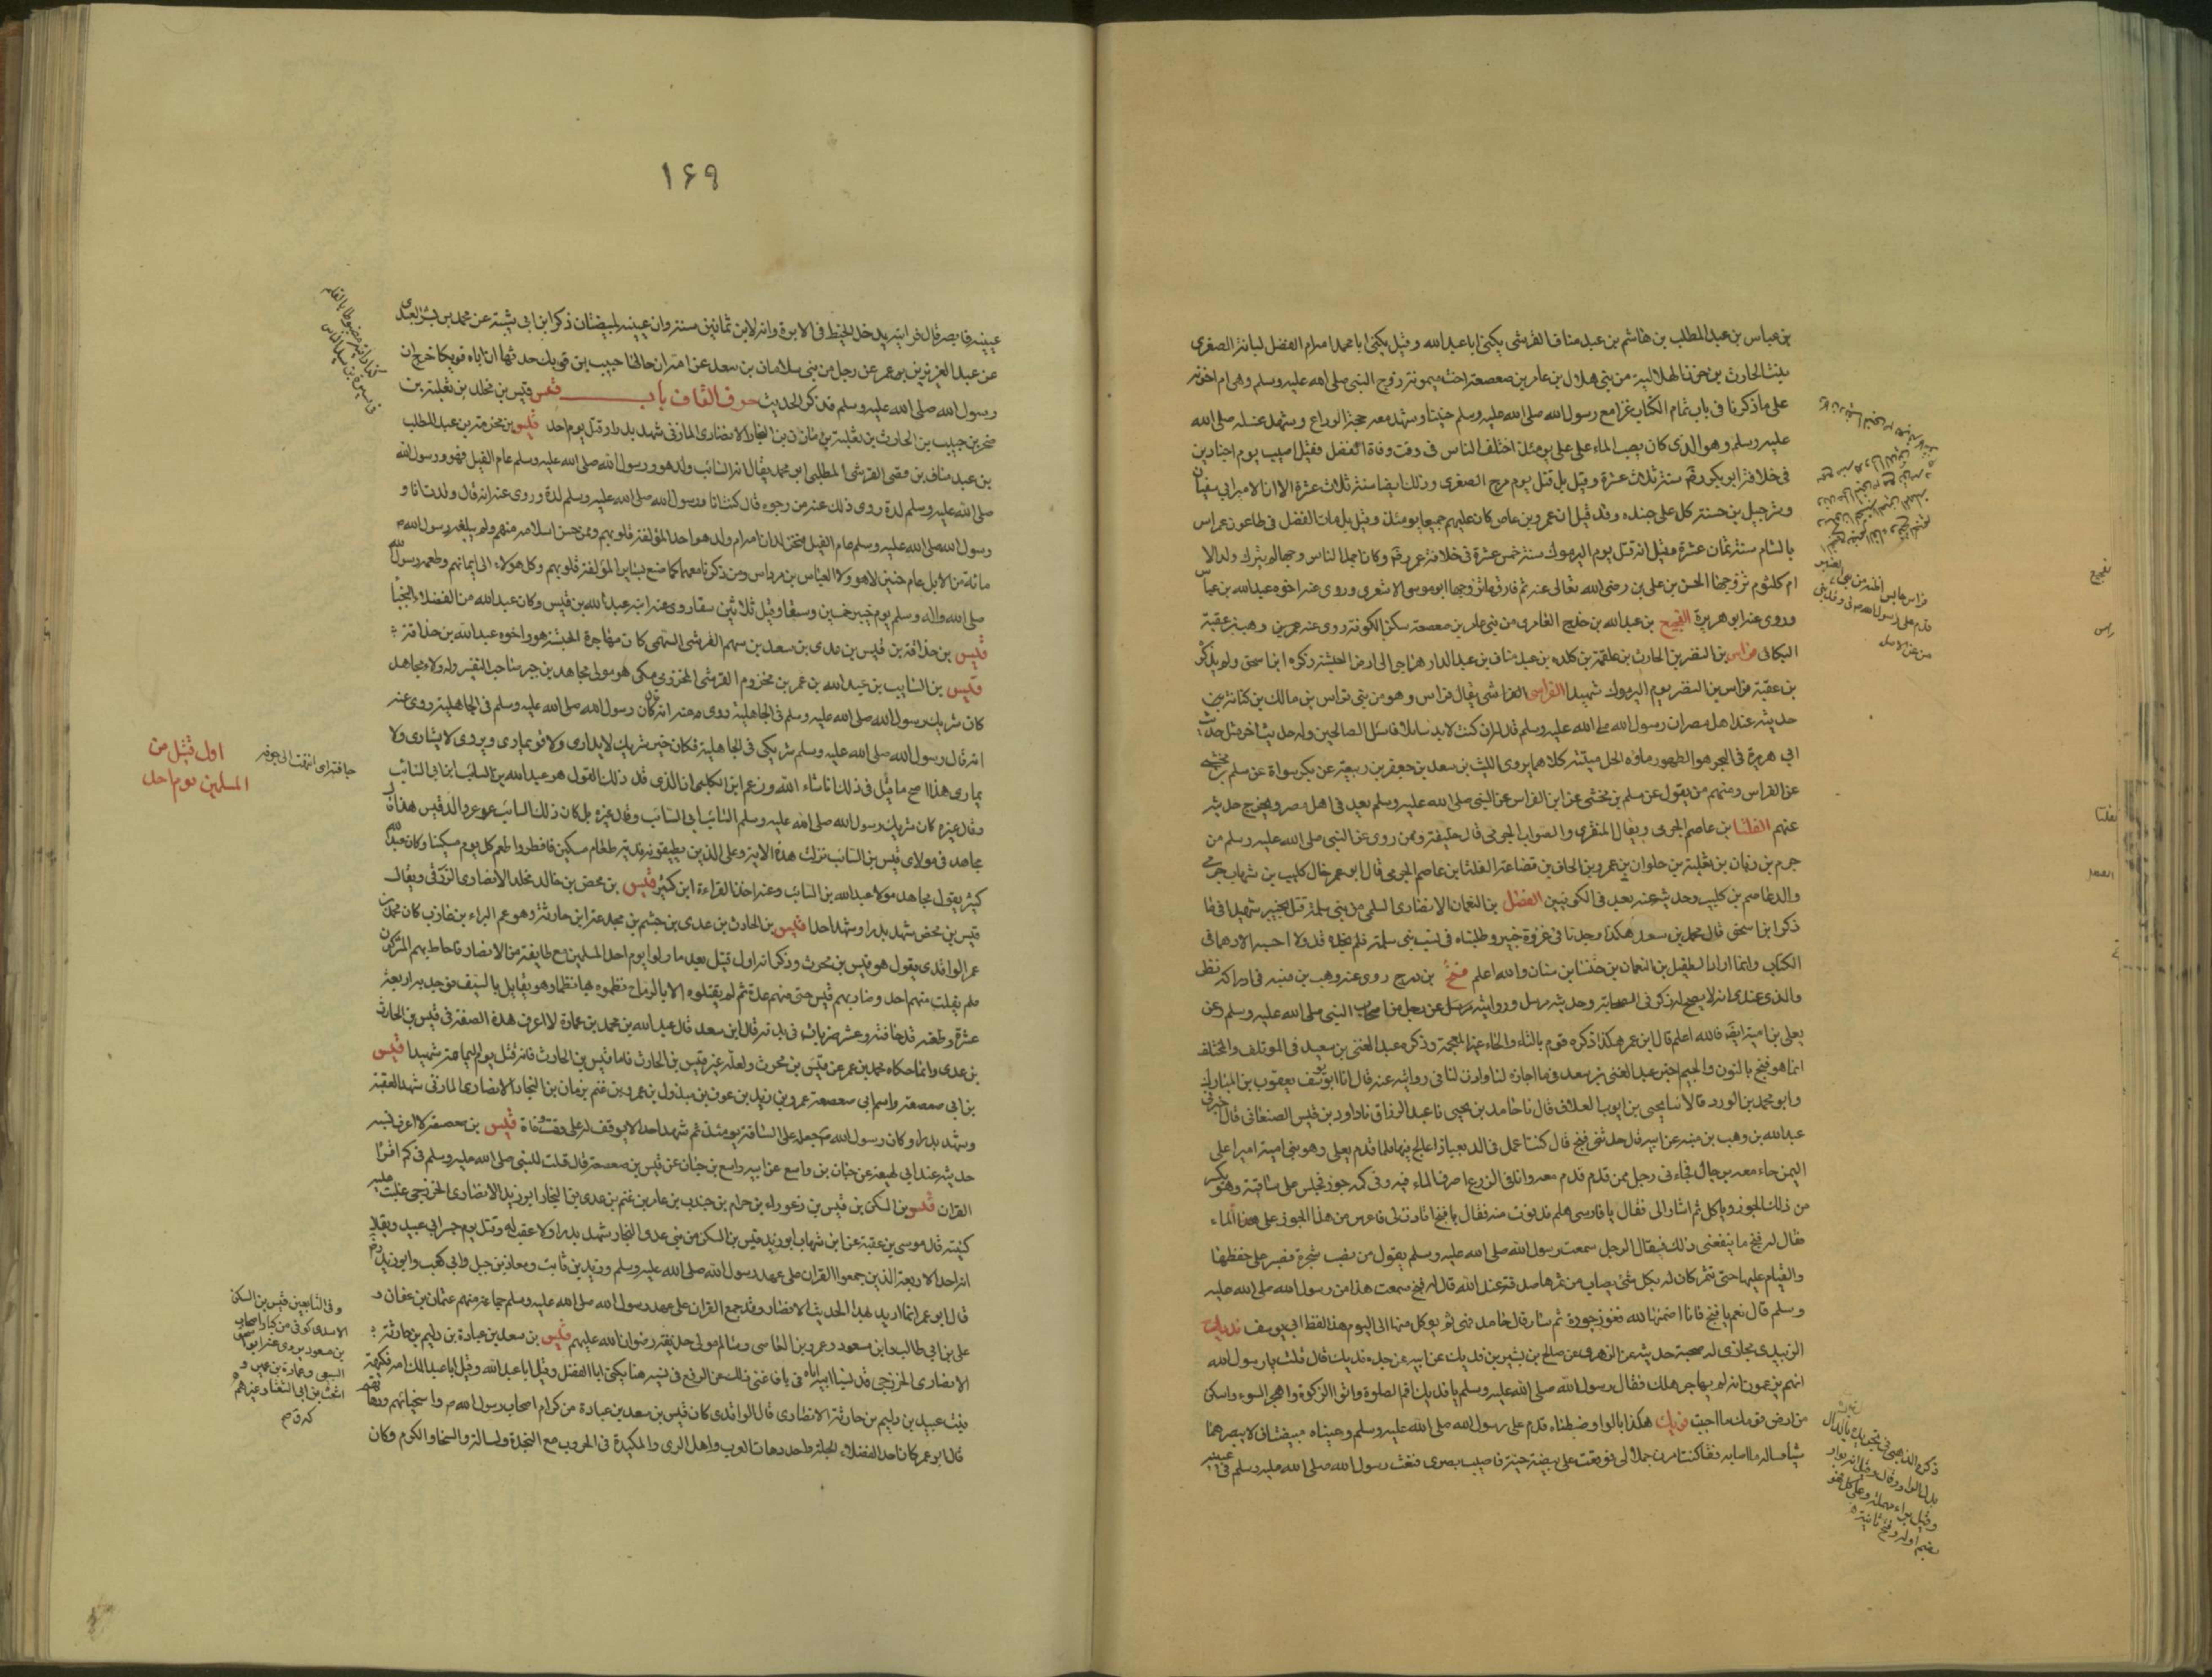 بن عباس بن عبد المطلب بن هاشم بن عبد مناف القرشي يكنى ابا عبد الله وقيل يكنى ابا محمد امه ام الفضل لبابة الصغرى
بنت الحارث بن حزن الهلالية من بني هلال بن عامر بن صعصعة اخت ميمونة زوج النبي صلى الله عليه وسلم وهي ام اخوته
على ما ذكرنا في باب تمام الكتاب غزا مع رسول الله صلى الله عليه وسلم حنينا وشهد معه حجة الوداع وشهد غسله صلى الله
عليه وسلم وهو الذي كان يصب الماء على علي يومئذ اختلف الناس في وقت وفاة الفضل فقيل اصيب يوم اجنادين
في خلافة ابو بكر سنة ثلاث عشرة وقيل بل قتل يوم مرج الصفرى وذلك ايضا سنة ثلاث عشرة الا ان الامير ابي سفيان
وشرحبيل بن حسنة كل على جنده وقد قيل ان عمرو بن عاص كان عليهم جميعا يومئذ وقيل بل مات الفضل في طاعون عمواس
بالشام سنة ثمان عشرة وقيل انه قتل يوم اليرموك سنة خمس عشرة في خلافة عمر وكان اجمل الناس وجها لم يترك ولدا الا
ام كلثوم تزوجها الحسن بن علي بن رضي الله تعالى عنه ثم فارقها فتزوجها ابو موسى الاشعري وروى عنه اخوه عبد الله بن عباس
وروى عنه ابو هريرة الفجيع بن عبد الله بن العامري من بني عامر بن صعصعة سكن الكوفة روى عنه وهب بن عقبة
البكائي فراس بن النضر بن الحارث بن علقمة بن كلدة بن عبد مناف بن عبد الدار هاجر الى ارض الحبشة ذكره ابن اسحق ولم يذكره
بن عقبة فراس بن النضر يوم اليرموك شهيدا الفراسي الفراسي يقال فراس وهو من بني فراس بن مالك بن كنانة
حديثه عند اهل مصر ان رسول الله صلى الله عليه وسلم قال له ان كنت لابد سائلا فاسئل الصالحين وله حديث اخر مثل حديث
ابي هريرة في البحر هو الطهور ماؤه الحل ميتته كلاهما يروى الليث بن سعد بن جعفر بن ربيعة عن بكر بن سوادة عن مسلم بن مخشي
عن الفراسي ومنهم من يقول عن مسلم بن مخشي عن ابن الفراسي عن النبي صلى الله عليه وسلم يعد في اهل مصر ويخرج حديثه
عنهم الفلتان بن عاصم الجرمي ويقال المنقري والصواب الجرمي قال خليفة وممن روى عن النبي صلى الله عليه وسلم من
جرم بن ربان بن ثعلبة بن حلوان بن عمرو بن الحاف بن قضاعة الفلتان بن عاصم الجرمي قال ابو عمر خال كليب بن شهاب جرمي
والد عاصم بن كليب وحديثه عنه يعد في الكوفيين الفضل بن النعمان الانصاري السلمي من بني سلمة قتل بخيبر شهيدا فيما
ذكر ابن اسحق قال محمد بن سعد هكذا وجدنا في غزوة خيبر وطلبناه في نسب بني سلمة فلم نجده قد ولا احسبه الا وهما في
الكتاب وانما اراد الطفيل بن النعمان بن خنساء بن سنان والله اعلم فنج بن دحرج روى عنه وهب بن منبه في ادراكه نظر
والذي عندي انه لا يصح له ذكر في الصحابة وحديثه مرسل وروايته مرسل عن رجل من اصحاب النبي صلى الله عليه وسلم وعن
يعلى بن امية ايضا فالله اعلم قال ابن عمر هكذا ذكره قوم بالتاء والخاء المعجمة وذكره عبد الغني بن سعيد في الموتلف والمختلف
انما هو فنج بالنون والجيم اخبر عبد الغني بن سعد فيما اجازه لنا واذن لنا في روايته عنه قال انا ابو يوسف يعقوب بن المبارك
وابو محمد بن الورد قالا ثنا يحيى بن ايوب العلاف قال نا حامد بن يحيى نا عبد الرزاق نا داود بن قيس الصنعاني قال اخبرني
عبد الله بن وهب بن منبه عن ابيه قال حدثني فنج قال كنت اعمل في الدينباد اعالج فيها فلما قدم يعلى وهو بن امية اميرا على
اليمن جاء معه برجال فجاءني رجل ممن قدم معه وانا في الزرع اصرف الماء فيه وفي كمه جوز فجلس على ساقية وهو يكسر
من ذلك الجوز وياكل ثم اشار الي فقال يا فارسي هلم فدنوت منه فقال يا فنج اتاذن لي فاغرس من هذا الجوز على هذا الماء
فقال له فنج ما ينفعني ذلك فقال الرجل سمعت رسول الله صلى الله عليه وسلم يقول من نصب شجرة فصبر على حفظها
والقيام عليها حتى تثمر كان له بكل شئ يصاب من ثمرها صدقة عند الله قال له فنج سمعت هذا من رسول الله صلى الله عليه
وسلم قال نعم يا فنج فانا اضمنها لله فغرز جوزة ثم سار قال حامد فهي ثم يوكل منها الى اليوم هذا لفظ ابي يوسف فديك
الزبيدي حجازي له صحبة حديثه عن الزهري عن صالح بن بشير بن فديك عن ابيه عن جده فديك قال قلت يا رسول الله
انهم يزعمون انه لم يهاجر هلك فقال رسول الله صلى الله عليه وسلم يا فديك اقم الصلوة واتوا الزكوة واهجر السوء واسكن
من ارض قومك ما احببت فويك هكذا بالواو ضبطناه قدم على رسول الله صلى الله عليه وسلم وعيناه مبيضتان لا يبصر بهما
شيا فساله ما اصابه فقال كنت امرن جملا لي فوقعت على بيضة حية فاصيب بصري فنفث رسول الله صلى الله عليه وسلم في عينيه
عينيه
١٦٩
عينيه فابصر قال فرايته يدخل الخيط في الابرة وانه لابن ثمانين سنة وان عينيه لمبيضتان ذكر ابن ابي شيبة عن محمد بن بشر العبدي
عن عبد العزيز بن عمر عن رجل من بني سلامان بن سعد عن امه ان خالها حبيب بن فويك حدثها ان اباه فويكا خرج الى
رسول الله صلى الله عليه وسلم قد ذكر الحديث حرف القاف باب قيس قيس بن مخلد بن ثعلبة بن
صخر بن حبيب بن الحارث بن ثعلبة بن مازن بن النجار الانصاري المازني شهد بدرا وقتل يوم احد قيس بن مخرمة بن عبد المطلب
بن عبد مناف بن قصي القرشي المطلبي ابو محمد يقال ابو السائب ولد هو ورسول الله صلى الله عليه وسلم عام الفيل فهو ورسول الله
صلى الله عليه وسلم لدة روى ذلك عنه من رجوه قال كنت انا ورسول الله صلى الله عليه وسلم لدة وروى عنه انه قال ولدت انا و
رسول الله صلى الله عليه وسلم عام الفيل فنحن لدان امه ام ولد هو احد المؤلفة قلوبهم وممن حسن اسلامه منهم ولم يبلغه رسول الله
مائة من الابل عام حنين لا هو ولا العباس بن مرداس ومن ذكرنا معهما كما صنع بسائر المؤلفة قلوبهم وكل هؤلاء الى ايمانهم واطعمه رسول الله
صلى الله واله وسلم يوم خيبر خمسين وسقا وقيل ثلاثين سقا روى عنه ابنه عبد الله بن قيس وكان عبد الله من الفضلاء النجباء
قيس بن حذافة بن قيس بن عدي بن سعد بن سهم القرشي السهمي كان مهاجرة الحبشة هو واخوه عبد الله بن حذافة
قيس بن السايب بن عبد الله بن عمر بن مخزوم القرشي المخزومي مكي هو مولى مجاهد بن جبر صاحب التفسير وله ولاء مجاهد
كان شريك رسول الله صلى الله عليه وسلم في الجاهلية روى عنه انه كان رسول الله صلى الله عليه وسلم في الجاهلية روى عنه
انه قال رسول الله صلى الله عليه وسلم شريكي في الجاهلية فكان خير شريك لا يداري ولا يماري ويروى لا يشاري ولا
يماري هذا اصح ما قيل في ذلك ان شاء الله وزعم ابن الكلبي ان الذي قال ذلك القول هو عبد الله بن السائب بن ابي السائب
وقال غيره كان شريك رسول الله صلى الله عليه وسلم السائب بن ابي السائب وقال غيره بل كان ذلك السائب بن عويمر والد قيس هذا قال
مجاهد في مولاي قيس بن السائب نزلت هذه الاية وعلى الذين يطيقونه فدية طعام مسكين فافطر واطعم كل يوم مسكينا وكان عبد الله
كثير يقول مجاهد مولا عبد الله بن السائب وعنه اخذ القراءة ابن كثير قيس بن محصن بن خالد مخلد الانصاري الزرقي ويقال
قيس بن محصن شهد بدرا وشهد احدا قيس بن الحارث بن عدي بن جشم بن مجدعة ابن حارثة وهو عم البراء بن عازب كان محمد بن
عمر الواقدي يقول هو قيس بن محرث وذكر انه اول قتيل بعد ما ولوا يوم احد المسلمين مع طايفة من الانصار فاحاط بهم المشركون
فلم يفلت منهم احد وضاربهم قيس حتى منهم عدة ثم لم يقتلوه الا بالرماح نظموه بها نظما وهو يقاتل بالسيف فوجد به اربعة
عشرة وطعنة قد جافته وعشر ضربات في بدنه قال ابن سعد قال عبد الله بن محمد بن عمارة لا اعرف هذه الصفة في قيس بن الحارث
بن عدي وانما حكاه محمد بن عمر عن قيس بن محرث ولعله غير قيس بن الحارث فاما قيس بن الحارث فانه قتل يوم اليمامة شهيدا قيس
بن ابي صعصعة واسم ابي صعصعة عمرو بن زيد بن عوف بن مبذول بن عمرو بن غنم بن مازن بن النجار الانصاري المازني شهد العقبة
وشهد بدرا وكان رسول الله صم جعله على الساقة يومئذ ثم شهد احدا لا يوقف له على وقت وفاة قيس بن صعصعة لا اعرف نسبه
حديثه عند ابن لهيعة عن حبان بن واسع عن ابيه واسع بن حبان عن قيس بن صعصعة قال قلت للنبي صلى الله عليه وسلم في كم اقرا
القران قيس بن السكن بن قيس بن زعوراء بن حرام بن جندب بن عامر بن غنم بن عدي بن النجار ابو زيد الانصاري الخزرجي غلبت عليه
كنيته قال موسى بن عقبة عن ابن شهاب ابو زيد قيس بن السكن من بني عدي النجار شهد بدرا ولا عقب له وقتل يوم جسر ابي عبيد ويقال
انه احد الاربعة الذين جمعوا القران على عهد رسول الله صلى الله عليه وسلم وزيد بن ثابت ومعاذ بن جبل وابي بن كعب وابو زيد
قال ابو عمر انما اريد بهذا الحديث الانصار وقد جمع القران على عهد رسول الله صلى الله عليه وسلم جماعة منهم عثمان بن عفان و
علي بن ابي طالب وابن مسعود وعمرو بن العاصي وسالم مولى حذيفة رضوان الله عليهم قيس بن سعد بن عبادة بن دليم بن حارثة
الانصاري الخزرجي قد نسبنا اباه في بابه فاغنى ذلك عن الرفع في نسبه هنا يكنى ابا الفضل وقيل ابا عبد الله وقيل ابا عبد الملك امه فكيهة
بنت عبيد بن دليم بن حارثة الانصاري قال الواقدي كان قيس بن سعد بن عبادة من كرام اصحاب رسول الله م واسخيائهم ودهاتهم
قال ابو عمر كان احد الفضلاء الجلة واحد دهاة العرب واهل الراي والمكيدة في الحروب مع النجدة والبسالة والسخا والكرم وكان
جافته اى انتهت الى جوفه
اول قتيل من
المسلمين يوم احد
وفي التابعين قيس بن السكن
الاسدي كوفي من كبار اصحاب
بن مسعود يروى عنه ابو اسحق
السبيعي وعمارة بن عمير و
اشعث بن ابي الشعثاء وغيرهم